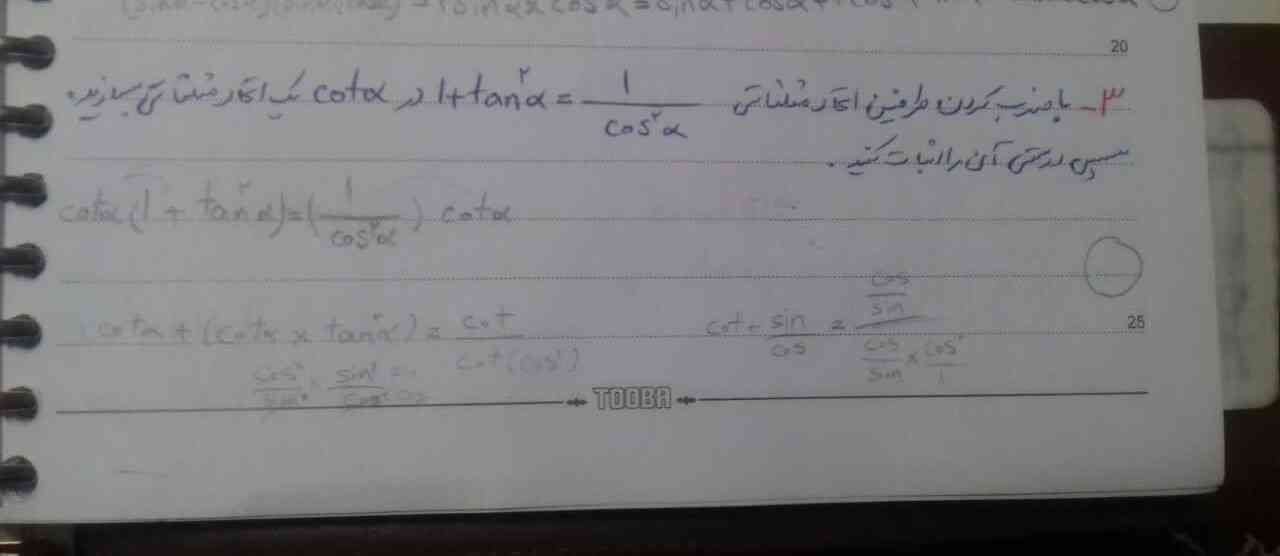 20
۳- با ضرب کردن طرفین اتحاد مثلثاتی 1+tan²α = 1/cos²α در cotα یک اتحاد مثلثاتی بسازید.
سپس درستی آن را اثبات کنید.
cotα(1 + tan²α) = (1/cos²α) cotα
cotα + (cotα × tan²α) = cot/cot(cos²) cot + sin/cos = (cos/sin)/(cos/sin × cos²/1)
25
TOOBA